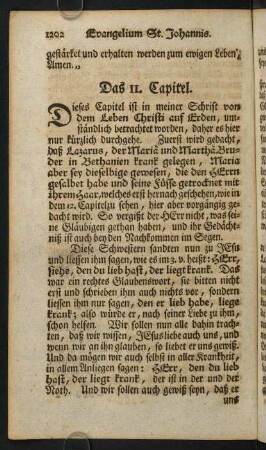 1202 Evangelium St. Johannis.
gestärket und erhalten werden zum ewigen Leben,
Amen.„
Das 11. Capitel.
Dieses Capitel ist in meiner Schrift von
dem Leben Christi auf Erden, um-
ständlich betrachtet worden, daher es hier
nur kürzlich durchgehe. Zuerst wird gedacht,
daß Lazarus, der Mariä und Marthä Bru-
der in Bethanien krank gelegen, Maria
aber sey diejelbige gewesen, die den HErrn
gesalbet habe und seine Füsse getrocknet mit
ihrem Haar, welches erst hernach geschehen, wie in
dem 12. Capitel zu sehen, hier aber vorgängig ge-
dacht wird. So vergißt der HErr nicht, was sei-
ne Gläubigen gethan haben, und ihr Gedächt-
niß ist auch bey den Nachkommen im Segen.
Diese Schwestern sandten nun zu JEsu
und liessen ihm sagen, wie es im 3. v. heißt: HErr,
siehe, den du lieb hast, der liegt krank. Das
war ein rechtes Glaubenswort, sie bitten nicht
erst und schrieben ihm auch nichts vor, sondern
liessen ihm nur sagen, den er lieb habe, liege
krank; also würde er, nach seiner Liebe zu ihm,
schon helfen. Wir sollen nun alle dahin trach-
ten, daß wir wissen, JEsus liebe auch uns, und
wenn wir an ihn glauben, so liebet er uns gewiß.
Und da mögen wir auch selbst in aller Krankheit,
in allem Anliegen sagen: HErr, den du lieb
hast, der liegt krank, der ist in der und der
Noth. Und wir sollen auch gewiß seyn, daß er
uns